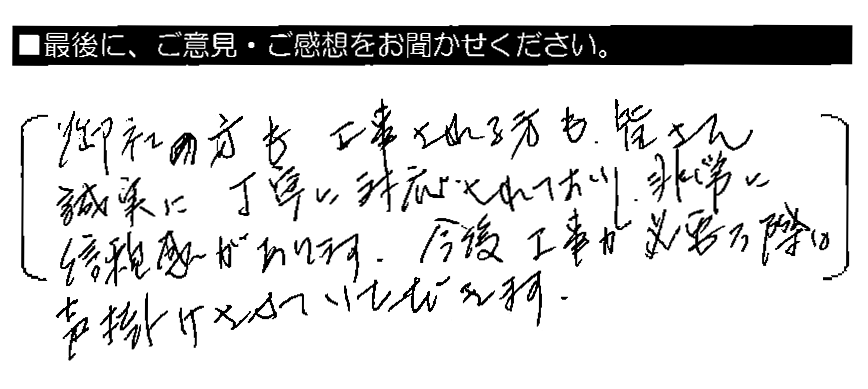 ■最後に、ご意見・ご感想をお聞かせください。
御社の方も工事される方も、皆さん
誠実に丁寧に対応されており、非常に
信頼感があります。今後工事が必要な際は
声掛けさせていただきます。